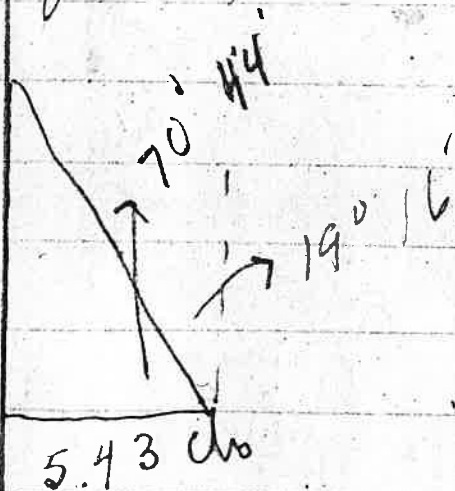 70° 44'
19° 16'
5.43 chs